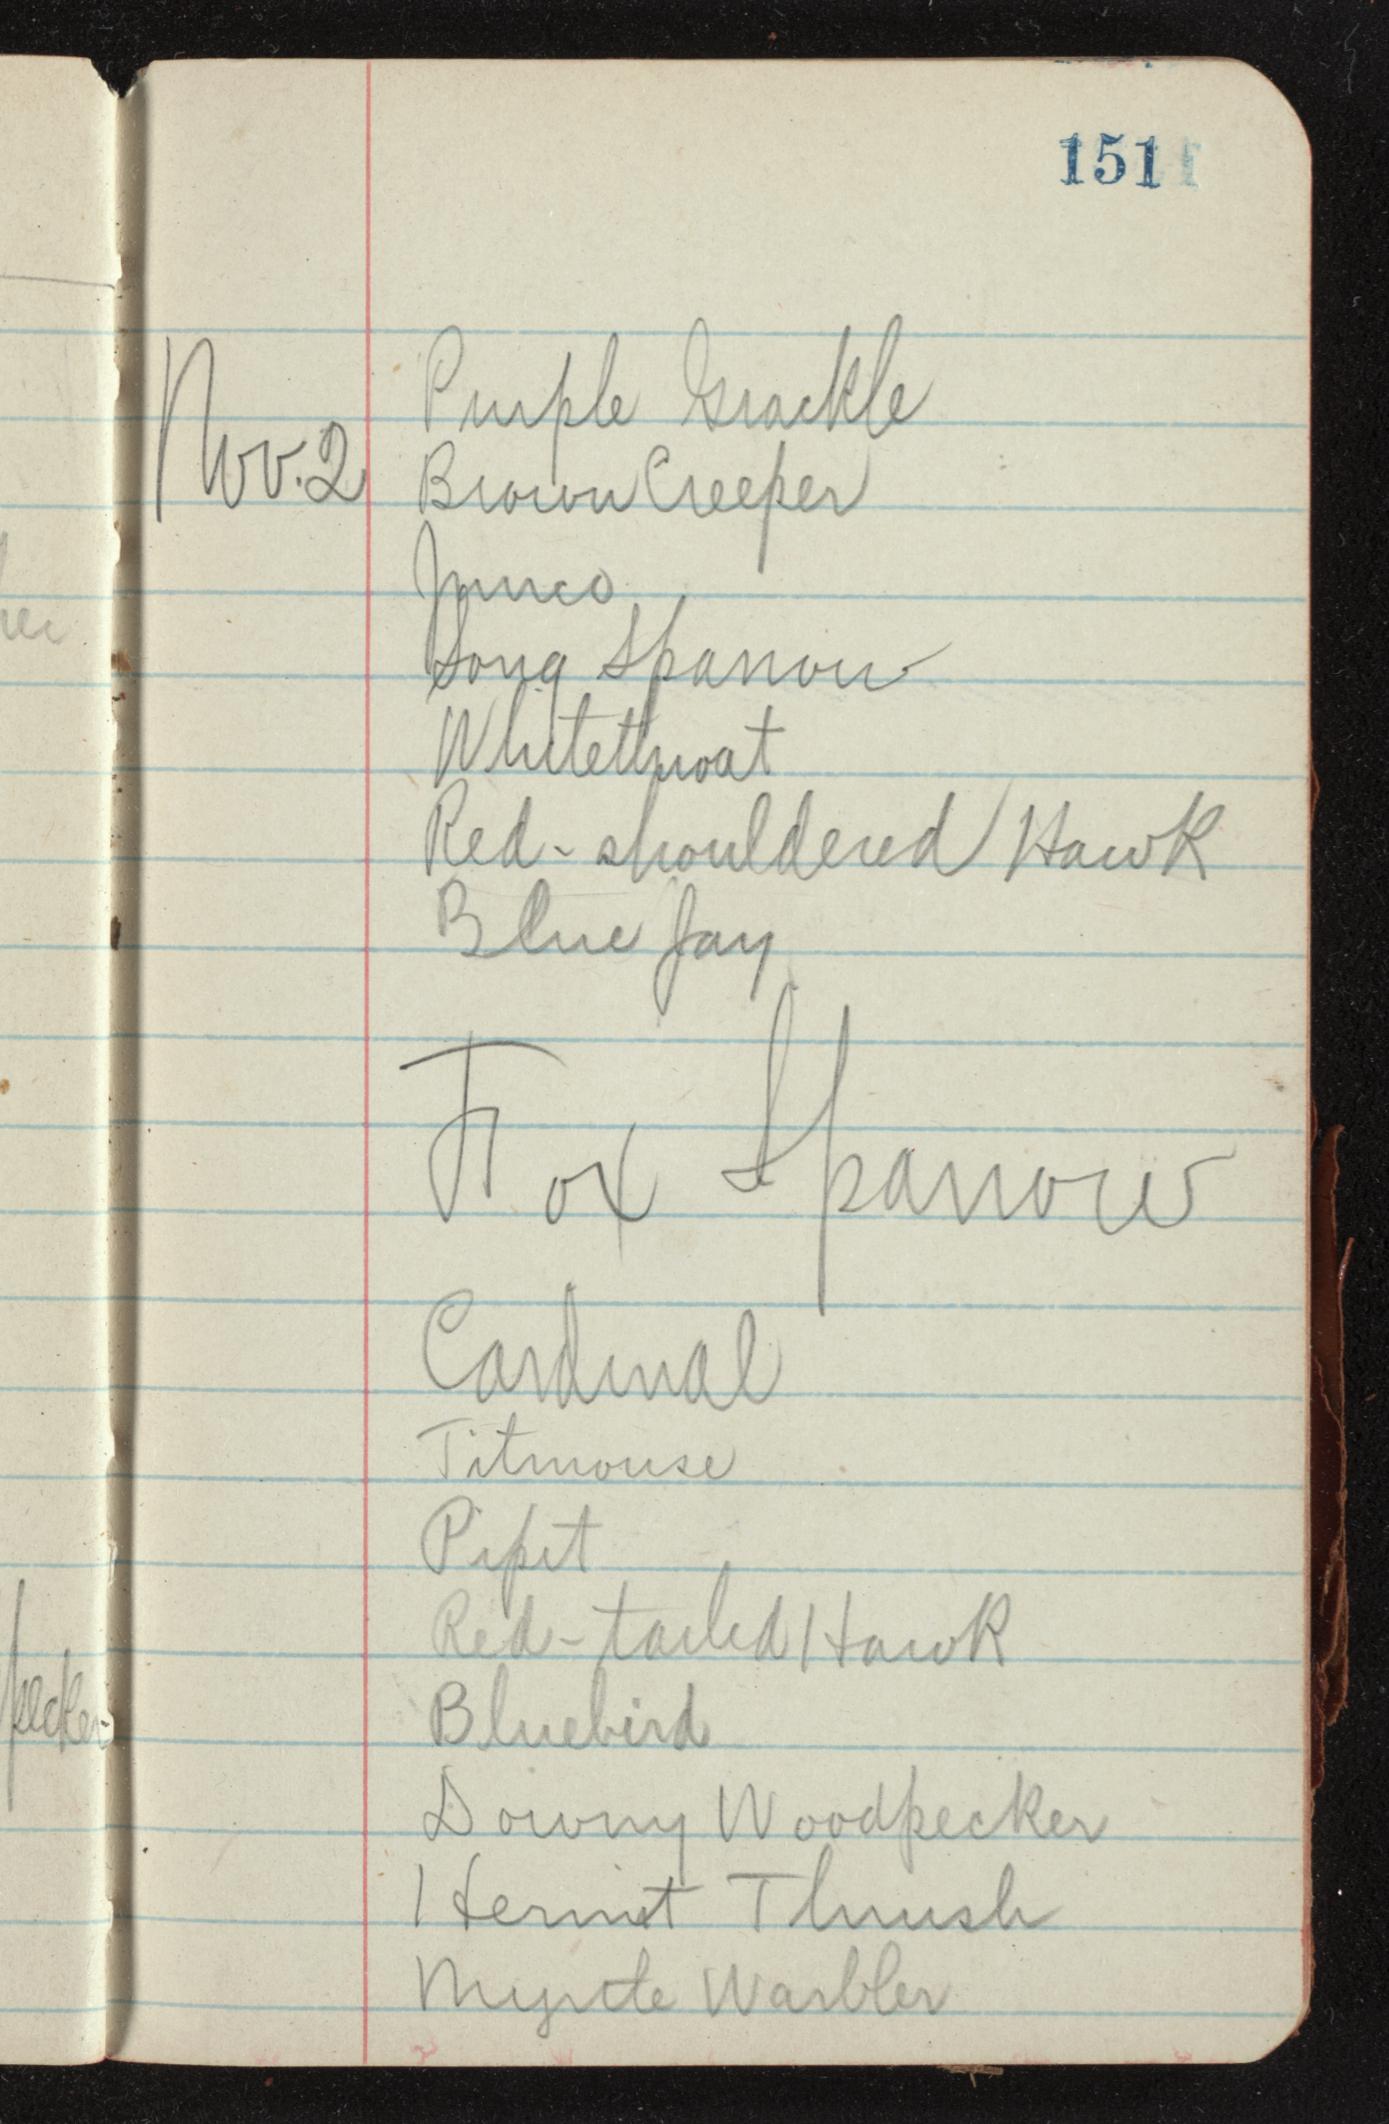 151
Nov. 2 Purple Grackle
Brown Creeper
Junco
Song Sparrow
Whitethroat
Red-shouldered Hawk
Blue Jay
Fox Sparrow
Cardinal
Titmouse
Pipit
Red-tailed Hawk
Bluebird
pecker
Downy Woodpecker
Hermit Thrush
Myrtle Warbler